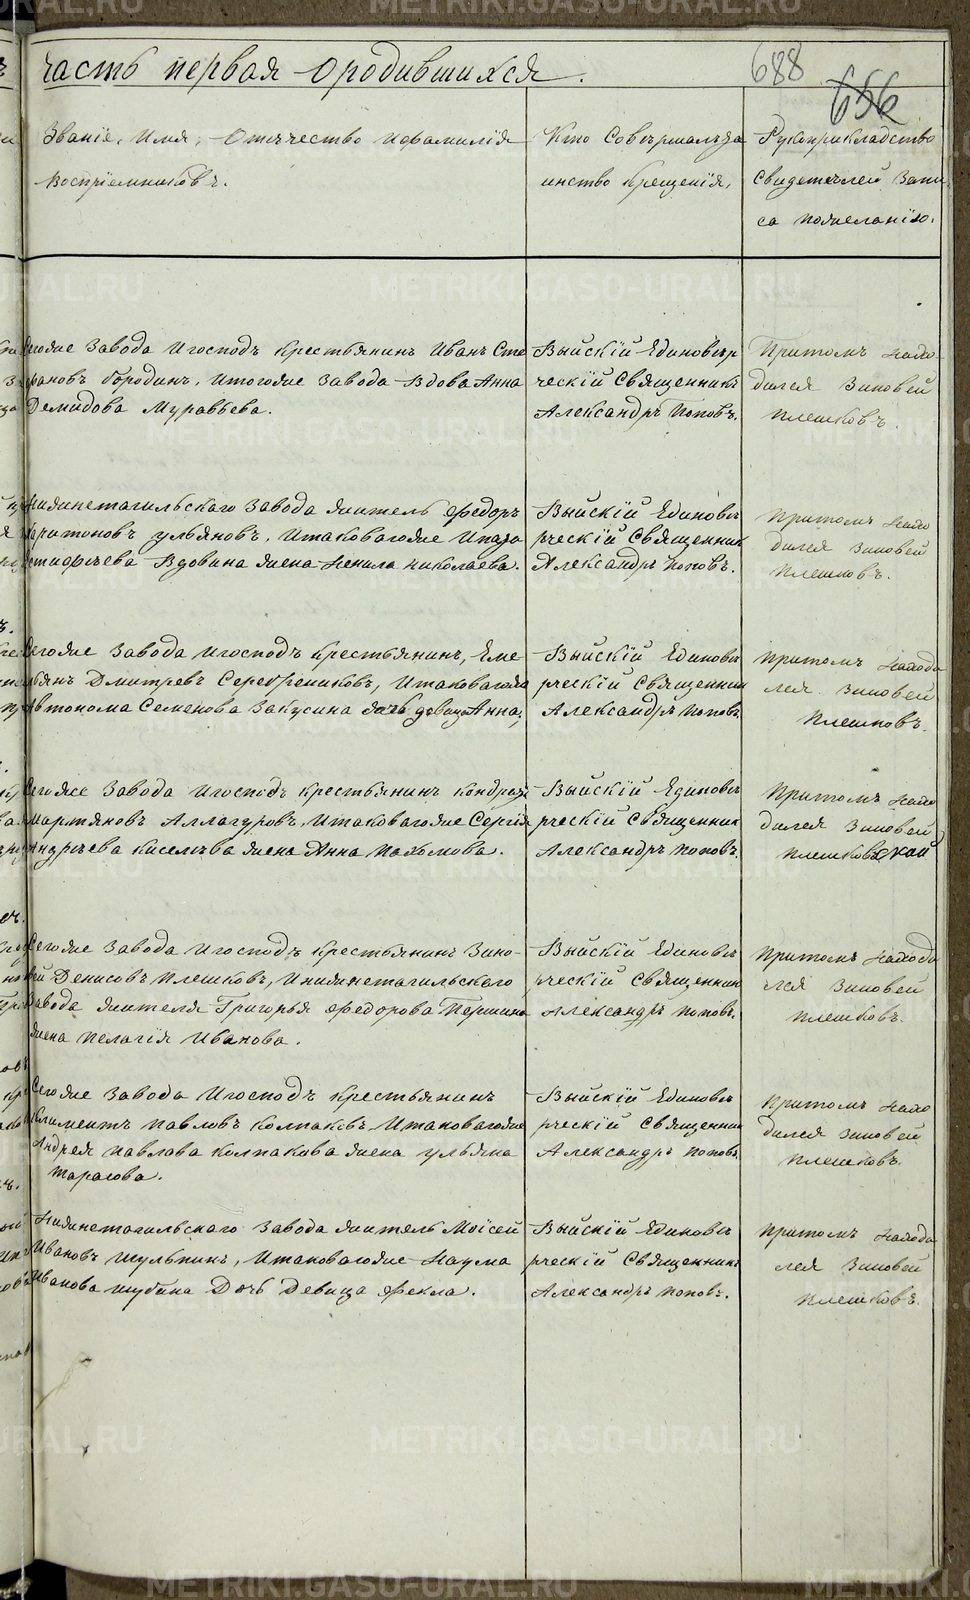 часть первая о родившихся.
688
656
Званіе, Имя, Отечество и фамилія
воспріемниковъ.
Кто Совершалъ та
инство Крещенія,
Рукоприкладство
Свидетелей Запи
са по желанію.
Сегоже Завода и господъ крестьянинъ Иванъ Сте
фановъ бородинъ, и тогоже завода Вдова Анна
Демидова Муравьева.
Выйскій Единовер
ческій Священникъ
Александръ Поповъ.
При томъ нахо
дился Зиновей
Плешковъ.
Нижнетагильскаго Завода житель Федоръ
Харитоновъ Ульяновъ, и таковагоже Ипата
Вдовина жена Ненила Николаева.
Выйскій Единове
рческій Священник
Александръ Поповъ.
При томъ нахо
дился Зиновей
Плешковъ.
Сегоже Завода и господъ крестьянинъ, Еме
льянъ Дмитревъ Серебрениковъ, и таковагоже
Автонома Семенова Закусина дочь девица Анна,
Выйскій Единове
рческій Священник
Александръ Поповъ.
При томъ находи
лся Зиновей
Плешковъ.
Сегоже Завода и господъ крестьянинъ Кондрат
Мартяновъ Аллагуровъ, и таковагоже Сергія
Андрѣева Киселѣва жена Анна Пахомова.
Выйскій Единове
рческій Священник
Александръ Поповъ.
При томъ нахо
дился Зиновей
Плешков
Сегоже Завода и господъ крестьянинъ Зино-
вей Денисовъ Плешковъ, и нижнетагильскаго
завода жителя Григорья Федорова Першина
жена Пелагія Иванова.
Выйскій Единове
рческій Священник
Александръ Поповъ.
При томъ находи
лся Зиновей
Плешковъ.
Сегоже Завода и господъ крестьянинъ
Климентъ Павловъ Колпаковъ и таковагоже
Андрея Павлова Колпакова жена Ульяна
Тарасова.
Выйскій Единове
рческій Священник
Александръ Поповъ.
При томъ нахо
дился Зиновей
Плешковъ.
Нижнетагильскаго Завода житель Моісей
Ивановъ Шульпинъ, и таковагоже Наума
Иванова Шубина Дочь Девица Фекла.
Выйскій Единове
рческій Священник
Александръ Поповъ.
При томъ находи
лся Зиновей
Плешковъ.
METRIKI.GASO-URAL.RU